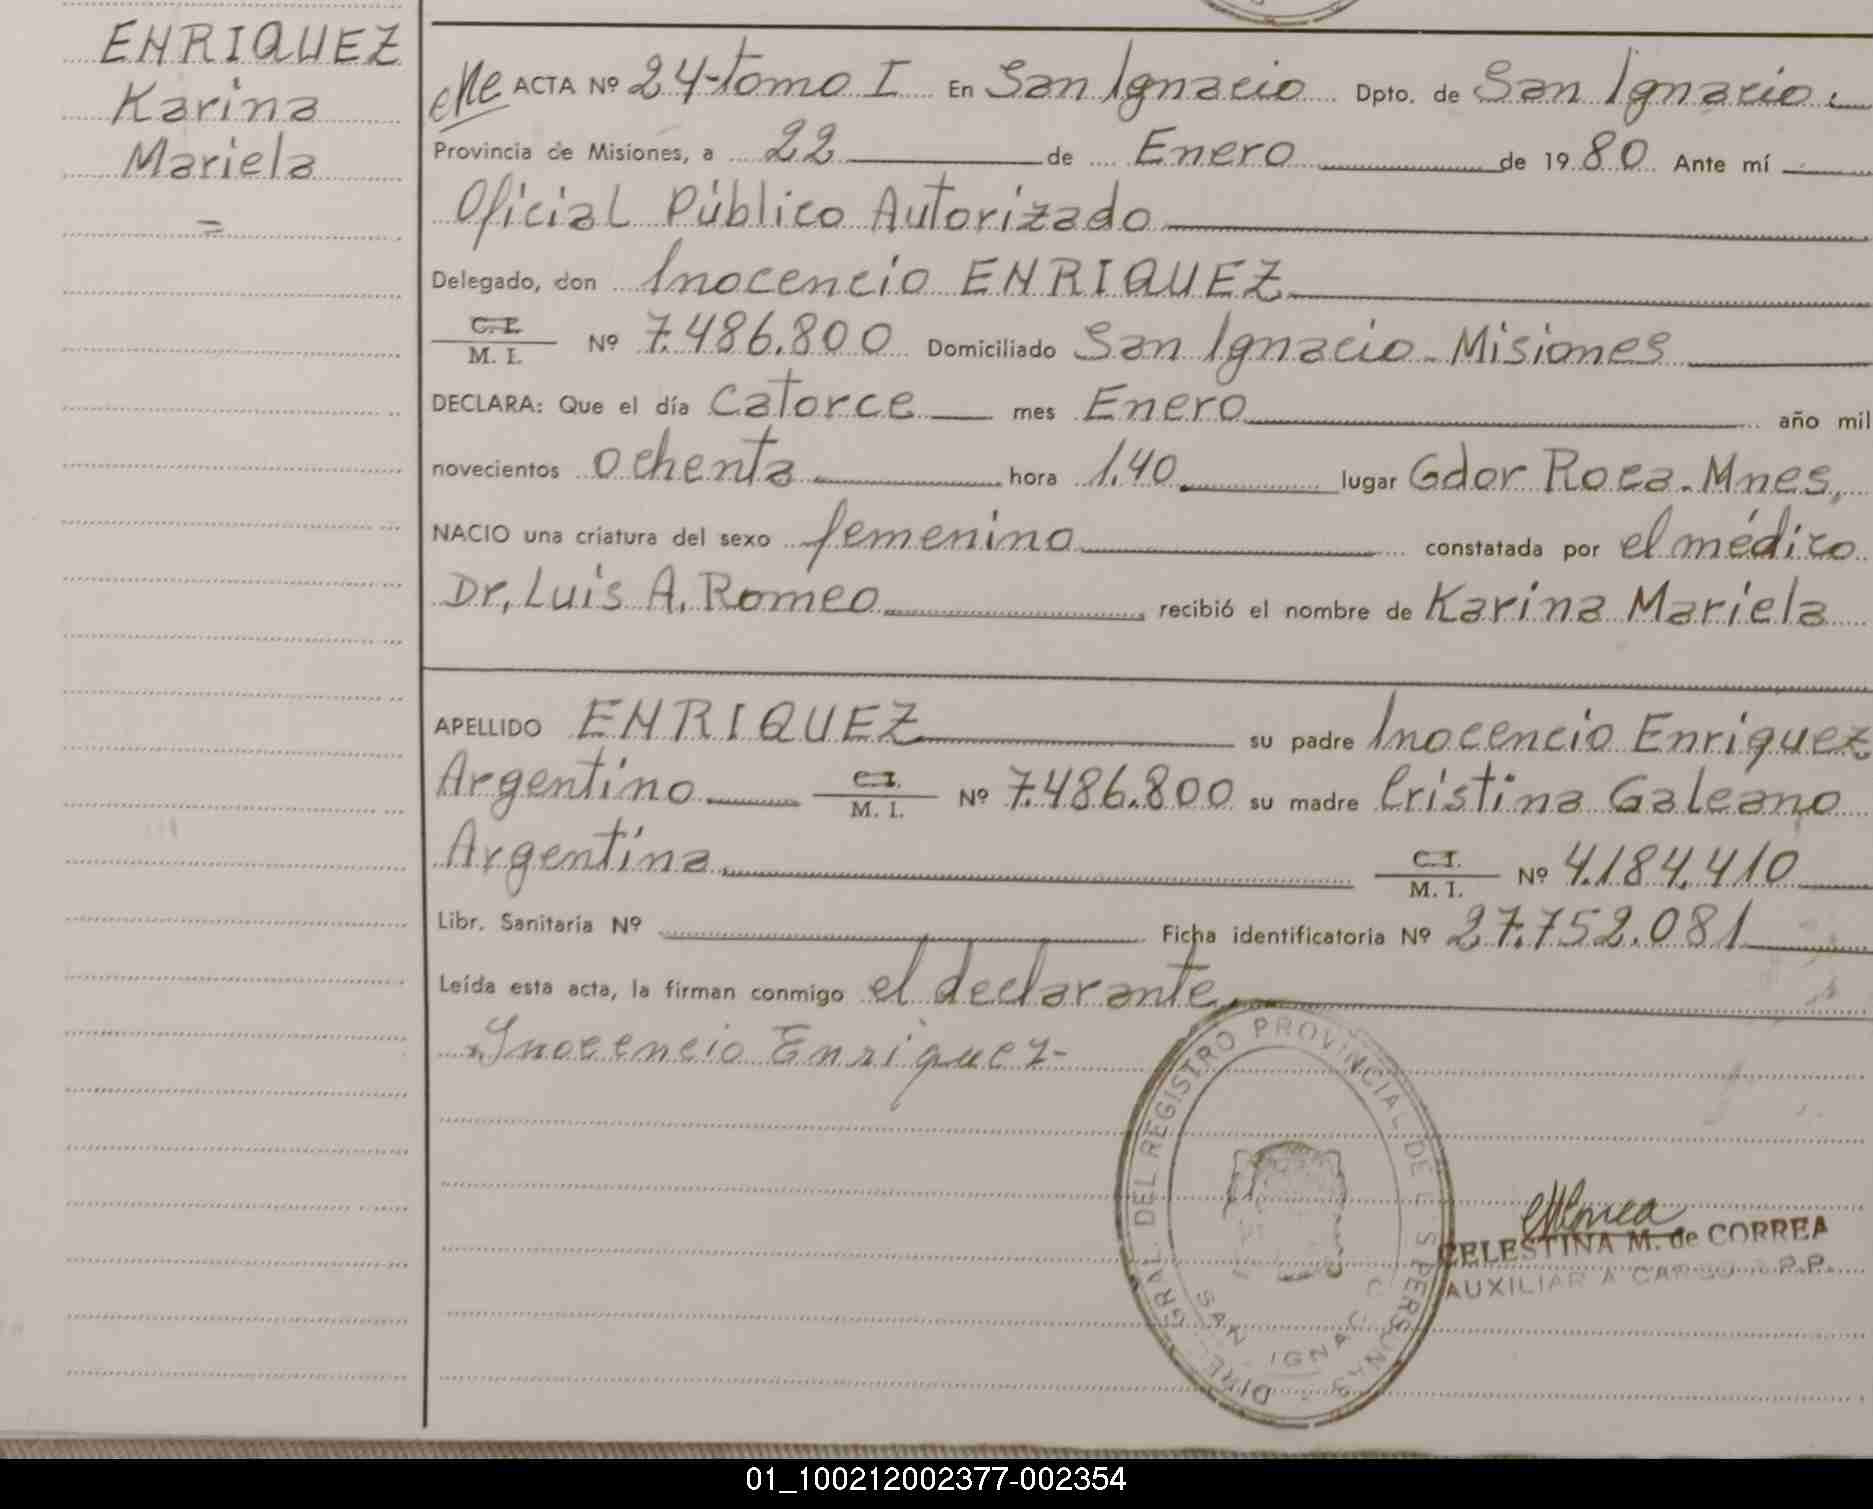 ENRIQUEZ
Karina
Mariela
=
ACTA Nº 24-tomo I En San Ignacio Dpto. de San Ignacio.
Provincia de Misiones, a 22 de Enero de 1980 Ante mí
Oficial Público Autorizado
Delegado, don Inocencio ENRIQUEZ
C.I. / M. I. Nº 7.486.800 Domiciliado San Ignacio - Misiones
DECLARA: Que el día Catorce mes Enero año mil
novecientos ochenta hora 1.40 lugar Gdor Roca. Mnes,
NACIO una criatura del sexo femenino constatada por el médico
Dr, Luis A. Romeo recibió el nombre de Karina Mariela
APELLIDO ENRIQUEZ su padre Inocencio Enriquez
Argentino C.I. / M. I. Nº 7.486.800 su madre Cristina Galeano
Argentina C.I. / M. I. Nº 4.184.410
Libr. Sanitaria Nº Ficha identificatoria Nº 27.752.081
Leída esta acta, la firman conmigo el declarante,
Inocencio Enriquez-
GRAL. DEL REGISTRO PROVINCIAL DE
SAN IGNACIO
CELESTINA M. de CORREA
AUXILIAR A CARGO
01_100212002377-002354